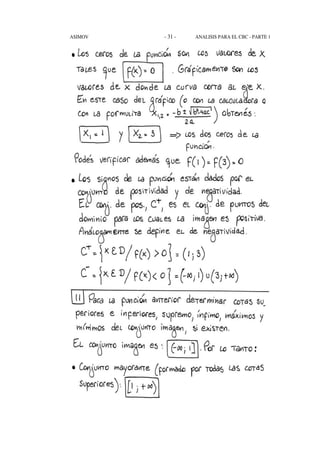 ASIMOV - 31 - ANALISIS PARA EL CBC - PARTE 1
• Los ceros de la función son los valores de x
tales que f(x) = 0 . Gráficamente son los
valores de x donde la curva corta al eje x.
En este caso del gráfico (o con la calculadora o
con la formulita x₁,₂ = (-b ± √(b²-4ac))/2a ) obtenés:
x₁ = 1 y x₂ = 3 => los dos ceros de la
función.
Podés verificar además que f(1) = f(3) = 0
• Los signos de la función están dados por el
conjunto de positividad y de negatividad.
El conj. de pos., C⁺, es el conj de puntos del
dominio para los cuales la imagen es positiva.
Análogamente se define el de negatividad.
C⁺ = {x ∈ D / f(x) > 0} = (1; 3)
C⁻ = {x ∈ D / f(x) < 0} = (-∞; 1) ∪ (3; +∞)
11 Para la función anterior determinar cotas su_
periores e inferiores, supremo, ínfimo, máximos y
mínimos del conjunto imagen, si existen.
El conjunto imagen es: (-∞; 1] . Por lo tanto:
• Conjunto mayorante (formado por todas las cotas
superiores): [1; +∞)